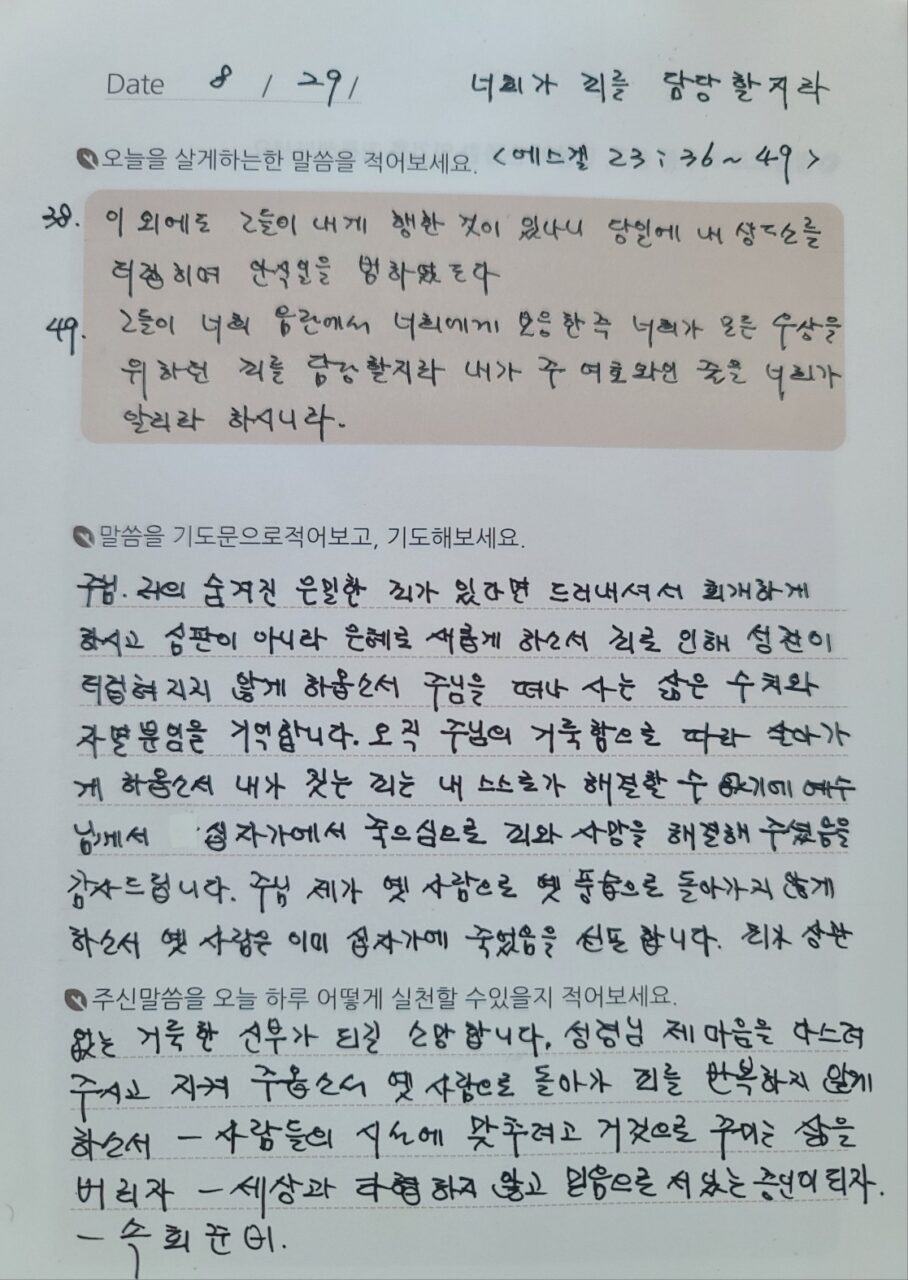 Date 8 / 29 / 너희가 죄를 담당할지라
오늘을 살게하는한 말씀을 적어보세요. <에스겔 23 ; 36 ~ 49>
38. 이 외에도 그들이 내게 행한 것이 있나니 당일에 내 성소를
더럽히며 안식일을 범하였도다
49. 그들이 너희 음란에서 너희에게 보응한즉 너희가 모든 우상을
위하던 죄를 담당할지라 내가 주 여호와인 줄을 너희가
알리라 하시니라.
말씀을 기도문으로적어보고, 기도해보세요.
주님. 저의 숨겨진 은밀한 죄가 있다면 드러내셔서 회개하게
하시고 심판이 아니라 은혜로 새롭게 하소서 죄로 인해 성전이
더럽혀지지 않게 하옵소서 주님을 떠나 사는 삶은 수치와
자멸뿐임을 기억합니다. 오직 주님의 거룩함으로 따라 살아가
게 하옵소서 내가 짓는 죄는 내 스스로가 해결할 수 없기에 예수
님께서 십자가에서 죽으심으로 죄와 사망을 해결해 주셨음을
감사드립니다. 주님 제가 옛 사람으로 옛 풍습으로 돌아가지 않게
하소서 옛 사람은 이미 십자가에 죽었음을 선포합니다. 죄와 상관
주신말씀을 오늘 하루 어떻게 실천할 수있을지 적어보세요.
없는 거룩한 신부가 되길 소망합니다. 성령님 제 마음을 다스려
주시고 지켜 주옵소서 옛 사람으로 돌아가 죄를 반복하지 않게
하소서 - 사람들의 시선에 맞추려고 거짓으로 꾸미는 삶을
버리자 - 세상과 타협하지 않고 믿음으로 서있는 증인이 되자.
- 속회 준비.